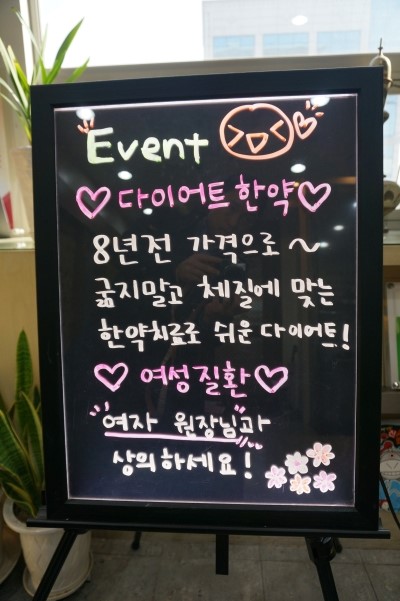 Event
다이어트 한약
8년전 가격으로~
굶지말고 체질에 맞는
한약치료로 쉬운 다이어트!
여성질환
여자 원장님과
상의하세요!